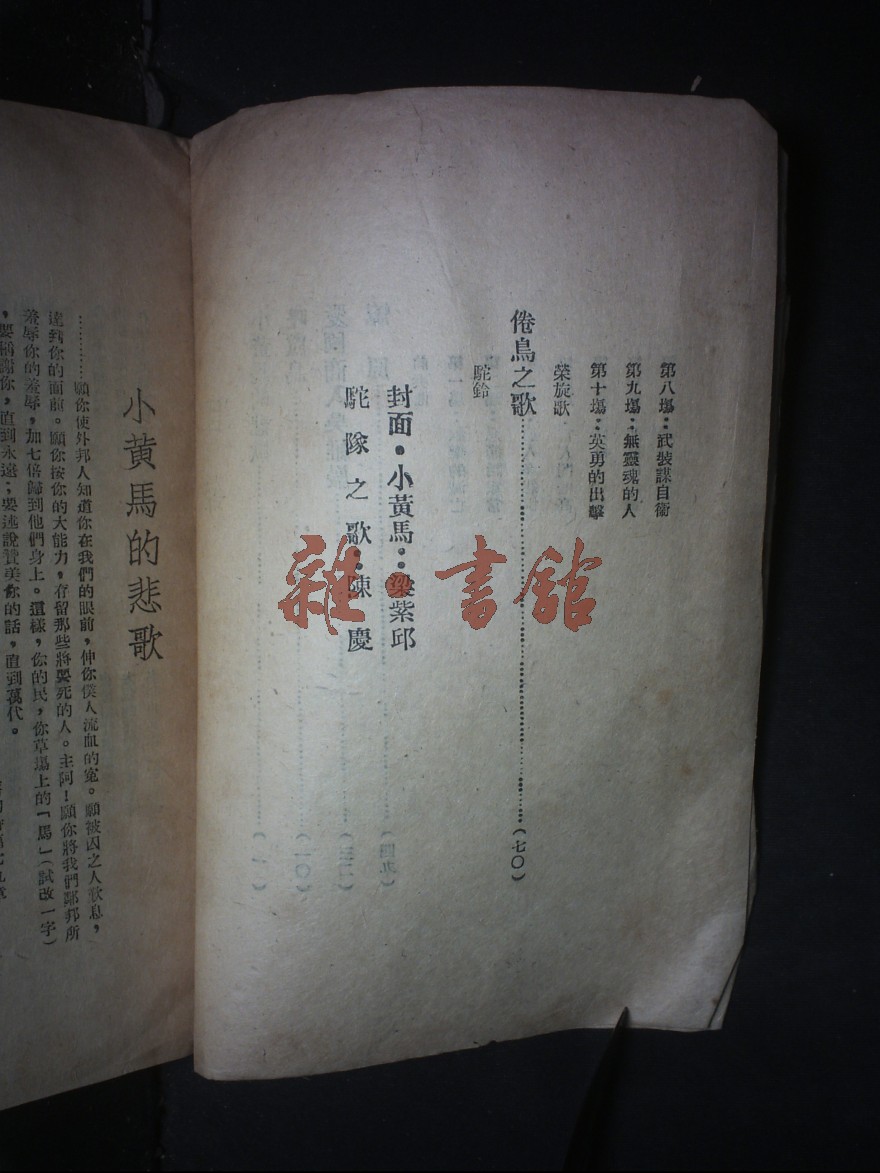 第八場：武裝謀自衞
第九場：無靈魂的人
第十場：英勇的出擊
榮旋歌
倦鳥之歌……………………………………（七〇）
駝鈴
封面・小黃馬：梁紫邱
駝隊之歌：陳慶
雜書館
小黃馬的悲歌
…………願你使外邦人知道你在我們的眼前，伸你僕人流血的寃。願被囚之人歎息，
達到你的面前。願你按你的大能力，存留那些將要死的人。主阿！願你將我們鄰邦所
羞辱你的羞辱，加七倍歸到他們身上。這樣，你的民，你草場上的「馬」（試改一字）
，要稱謝你，直到永遠；要述說贊美你的話，直到萬代。